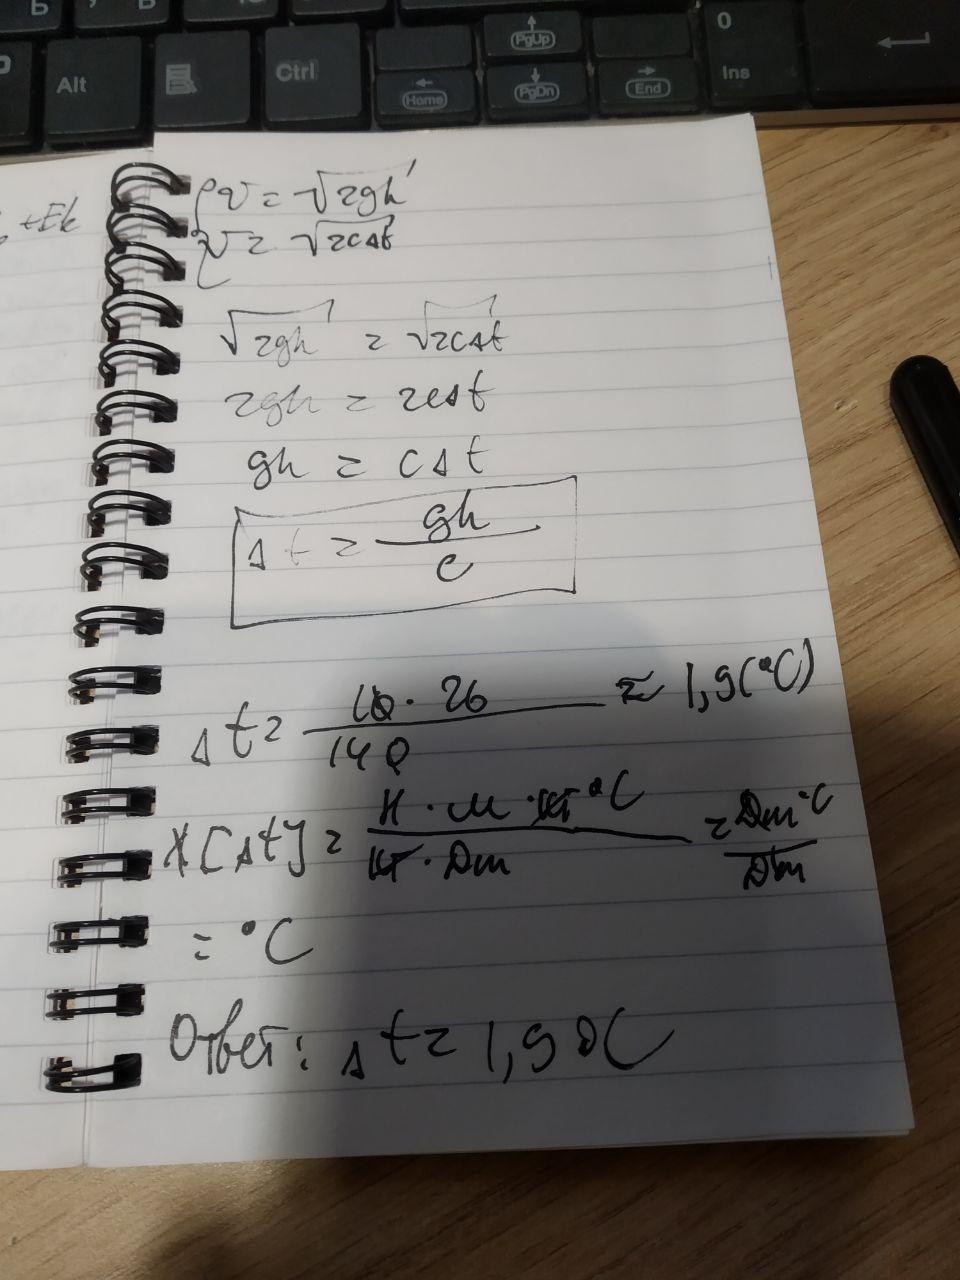 Alt
Ctrl
PgUp
0
Ins
Home
PgDn
End
+Ek
υ = √2gh
υ = √2cΔt
√2gh = √2cΔt
2gh = 2cΔt
gh = cΔt
Δt = gh/c
Δt = 10 · 26/140 ≈ 1,9(°C)
X[Δt] = Н · м · кг °C/кг · Дж = Дж °C/Дж
= °C
Ответ: Δt = 1,9 °C